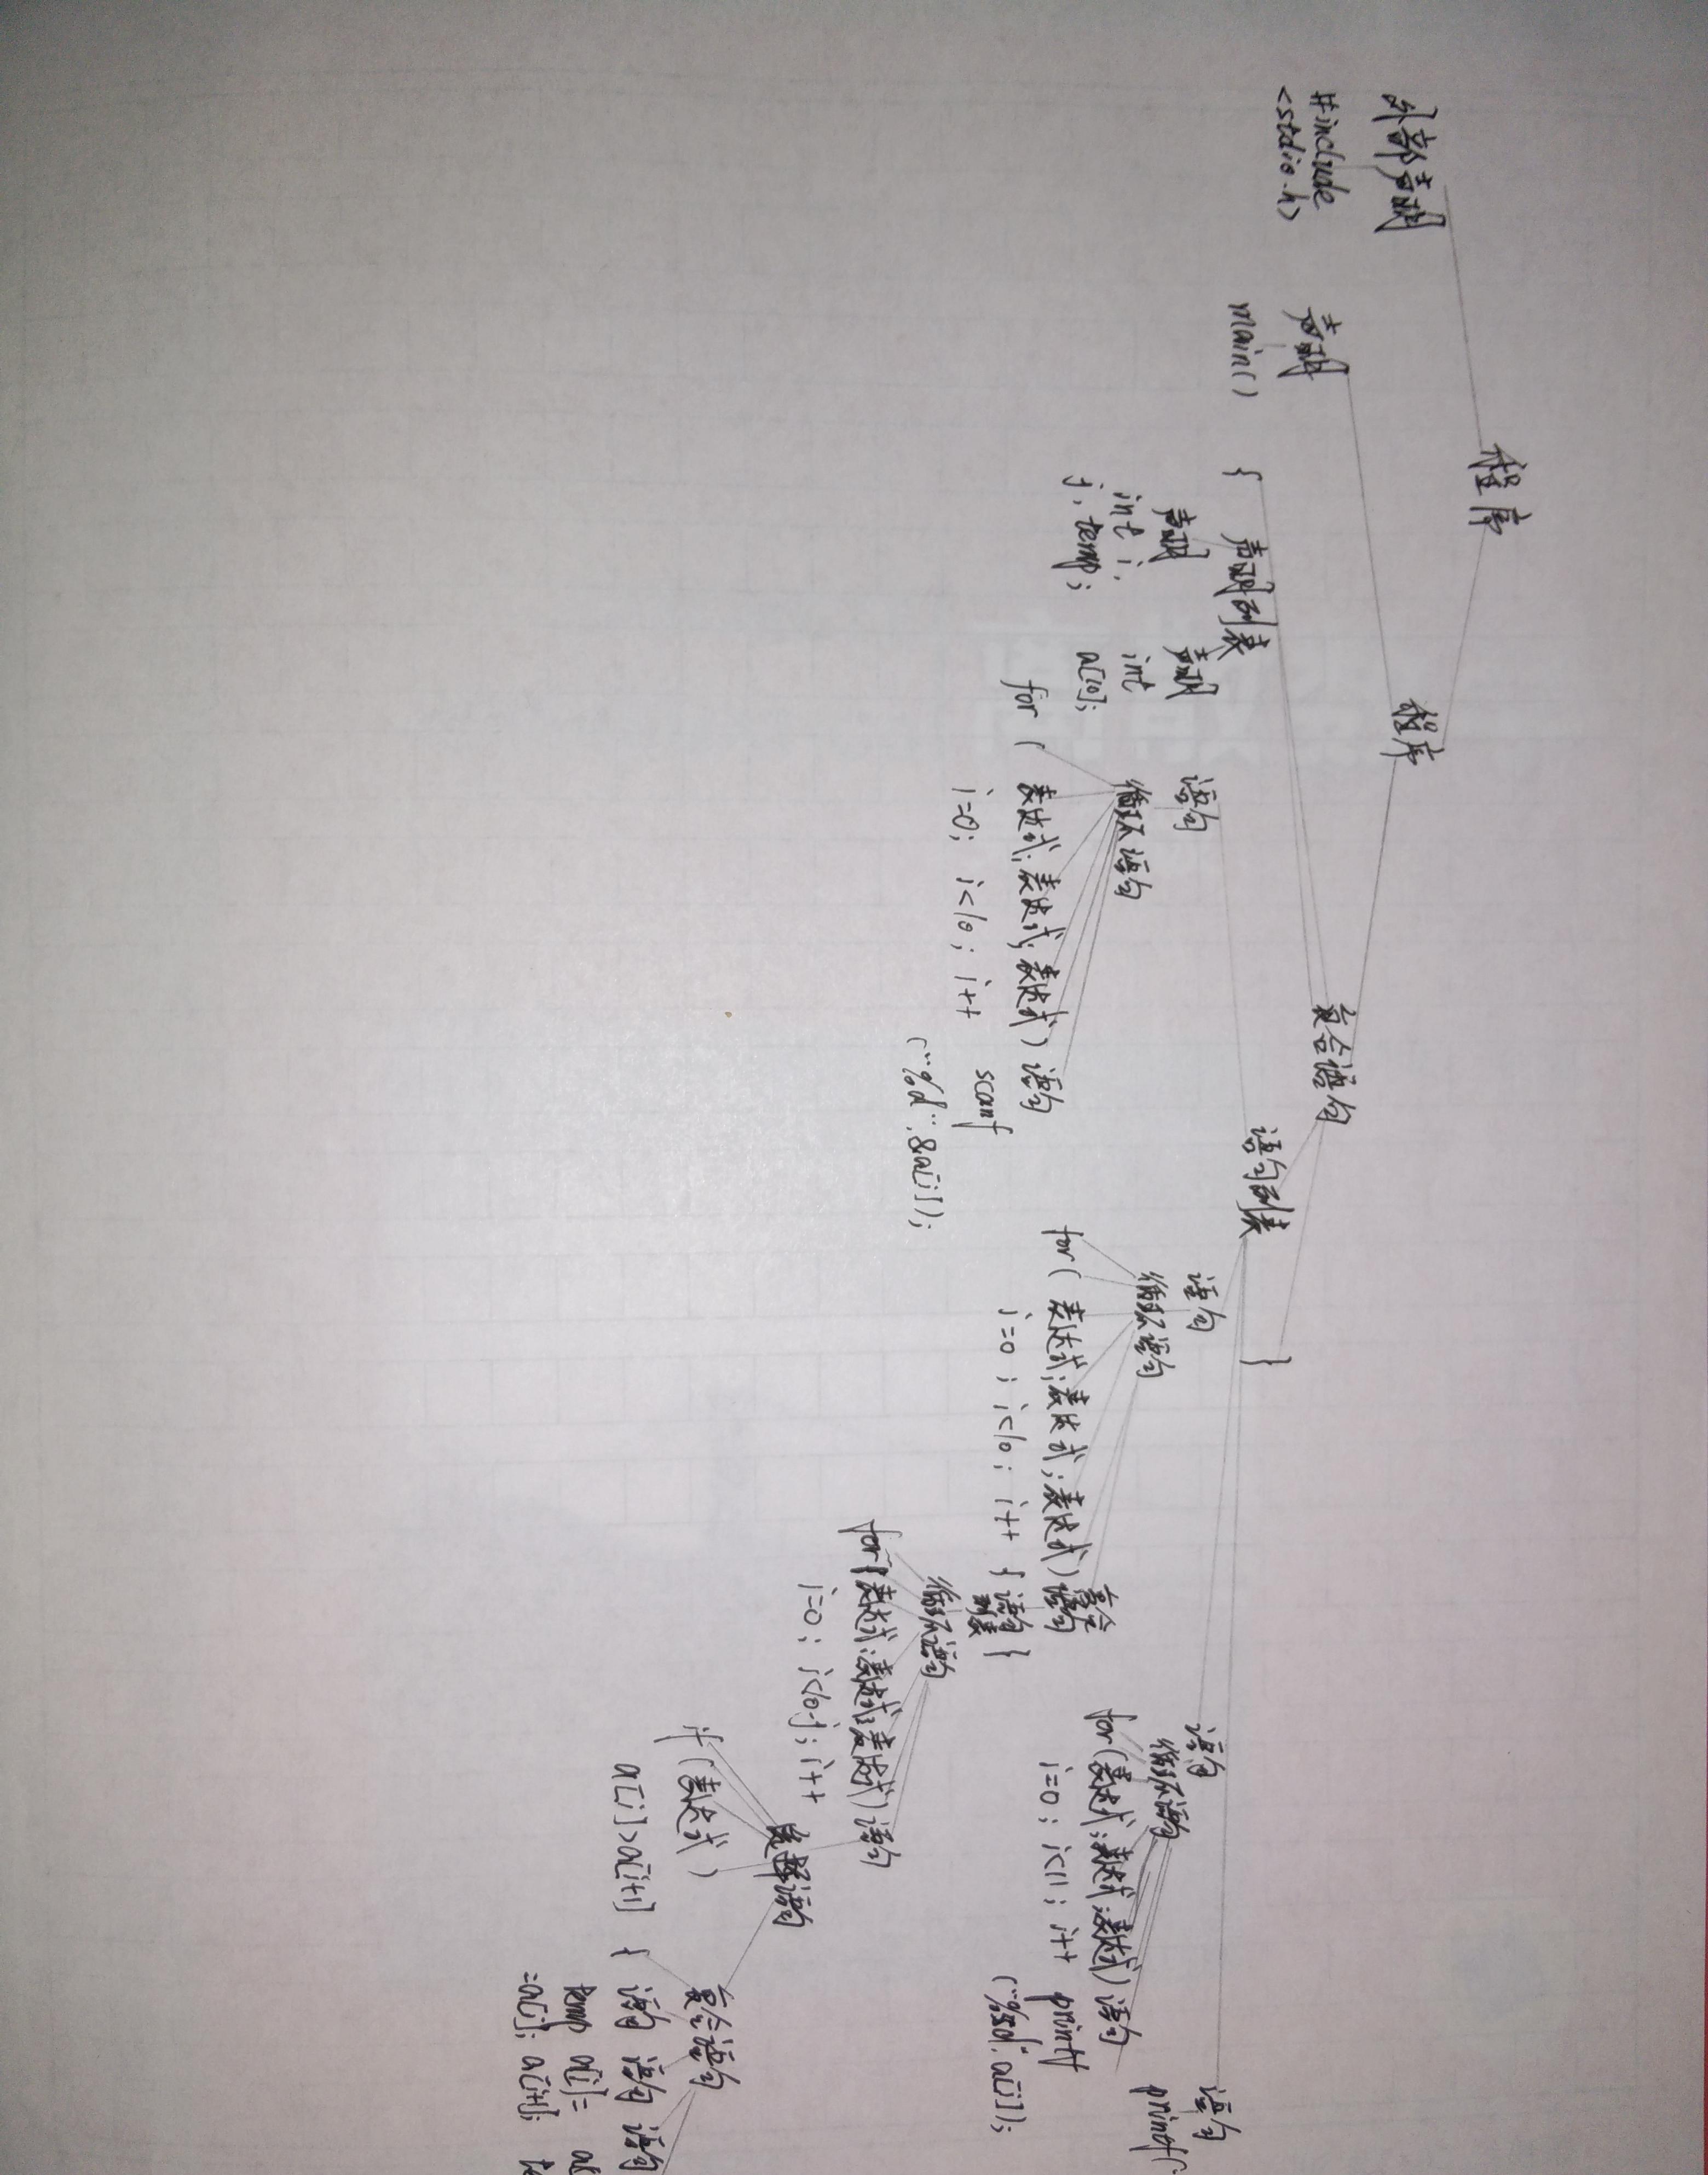 程序
外部声明
#include
<stdio.h>
程序
声明
main()
复合语句
{
声明列表
语句列表
}
声明
int i,
j, temp;
声明
int
a[10];
语句
循环语句
for (表达式;表达式;表达式) 语句
i=0; i<10; i++
scanf
("%d",&a[i]);
语句
循环语句
for (表达式;表达式;表达式) 复合语句
i=0; i<10; i++
{ 语句列表 }
循环语句
for (表达式;表达式;表达式) 语句
i=0; i<10-j; i++
选择语句
if (表达式)
a[i]>a[i+1]
复合语句
{ 语句 语句 语句
temp a[i]=
=a[i]; a[i+1];
语句
循环语句
for (表达式;表达式;表达式) 语句
i=0; i<11; i++
printf
("%5d",a[i]);
语句
printf(